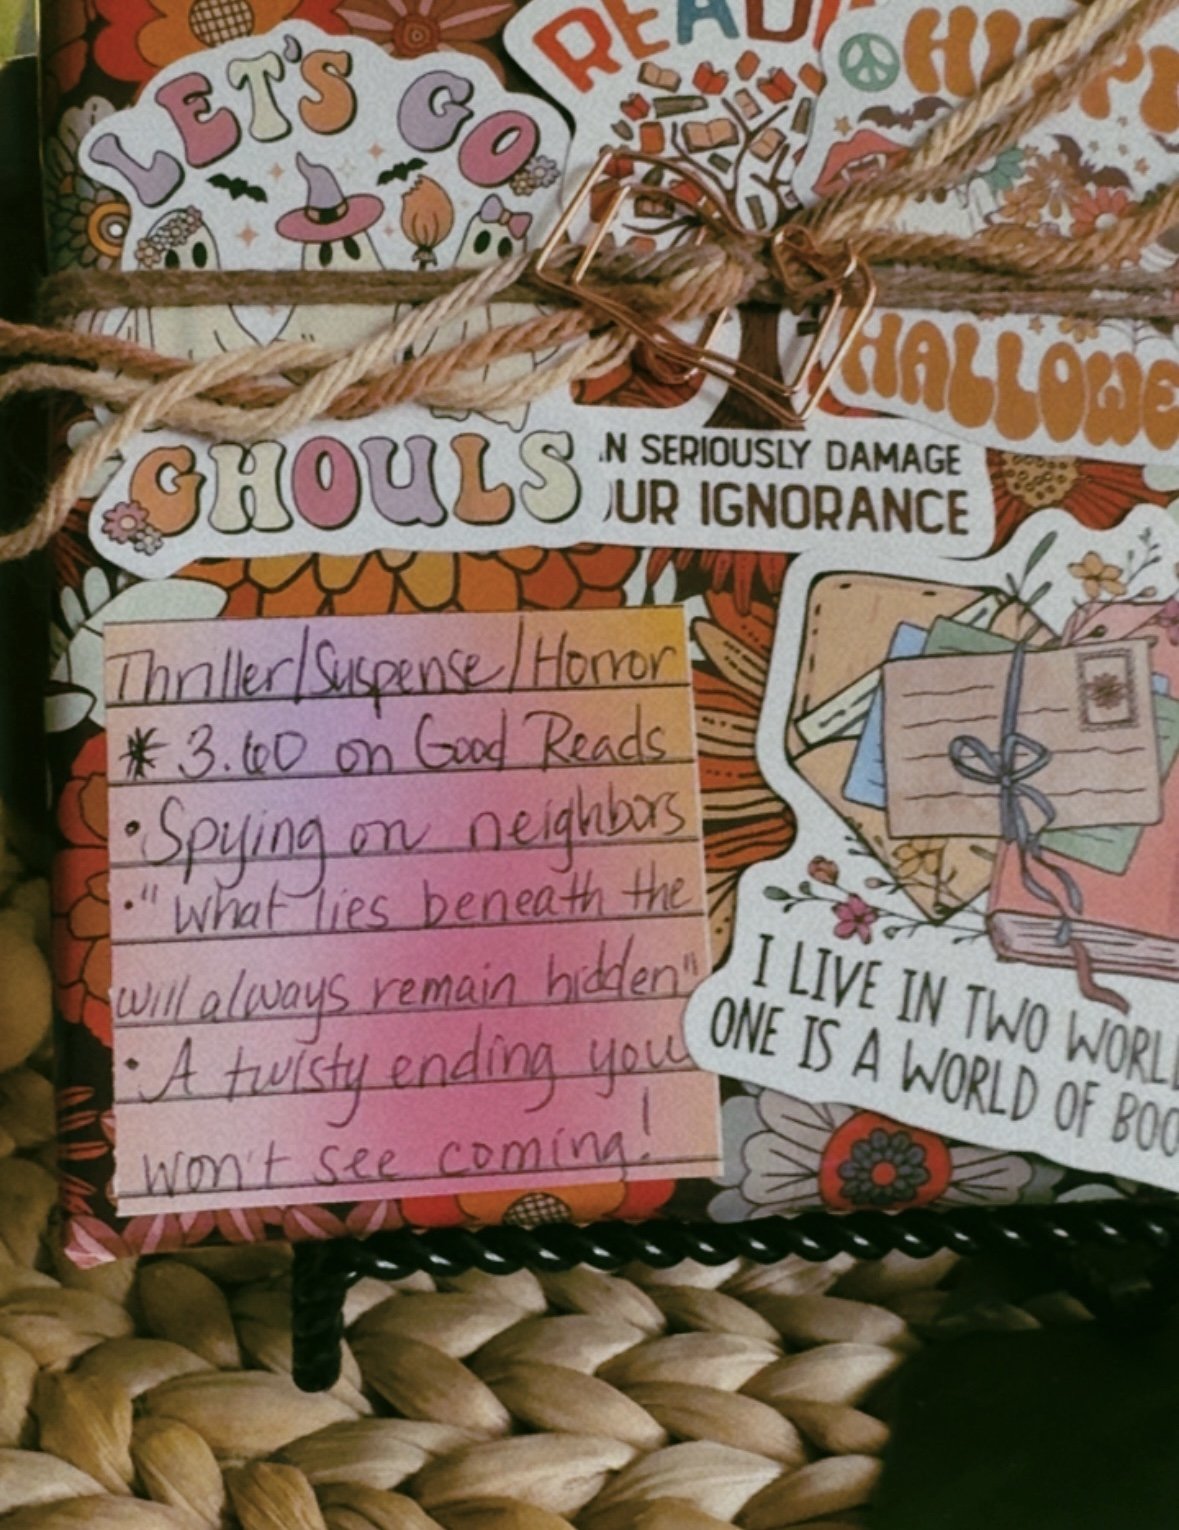 LET'S GO
GHOULS
READ
HIPPE
HALLOWE
N SERIOUSLY DAMAGE
UR IGNORANCE
Thriller/Suspense/Horror
* 3.60 on Good Reads
• Spying on neighbors
• "What lies beneath the
will always remain hidden"
• A twisty ending you
won't see coming!
I LIVE IN TWO WORL
ONE IS A WORLD OF BOO